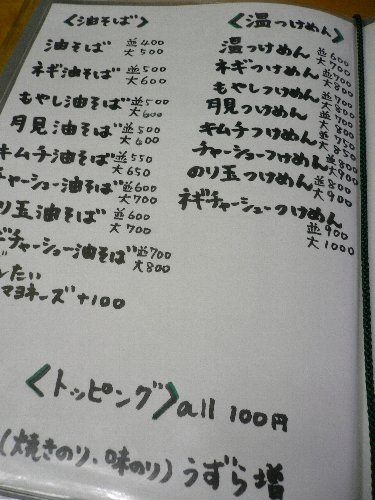 〈油そば〉
油そば 並400
大500
ネギ油そば 並500
大600
もやし油そば 並500
大600
月見油そば 並500
大600
キムチ油そば 並550
大650
チャーシュー油そば 並600
大700
のり玉油そば 並600
大700
ネギチャーシュー油そば 並700
大800
したい
マヨネーズ+100
〈温つけめん〉
温つけめん 並600
大700
ネギつけめん 並700
大800
もやしつけめん 並700
大800
月見つけめん 並700
大800
キムチつけめん 並750
大850
チャーシューつけめん 並800
大900
のり玉つけめん 並800
大900
ネギチャーシューつけめん
並900
大1000
〈トッピング〉all 100円
(焼きのり、味のり)うずら増